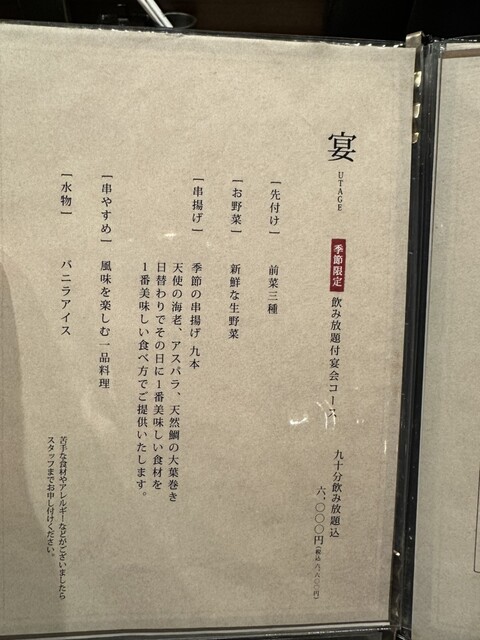 宴
UTAGE
季節限定 飲み放題付宴会コース
九十分飲み放題込
六,〇〇〇円(税込 六,六〇〇円)
[先付け] 前菜三種
[お野菜] 新鮮な生野菜
[串揚げ] 季節の串揚げ 九本
天使の海老、アスパラ、天然鯛の大葉巻き
日替わりでその日に1番美味しい食材を
1番美味しい食べ方でご提供いたします。
[串やすめ] 風味を楽しむ一品料理
[水物] バニラアイス
苦手な食材やアレルギーなどがございましたら
スタッフまでお申し付けください。